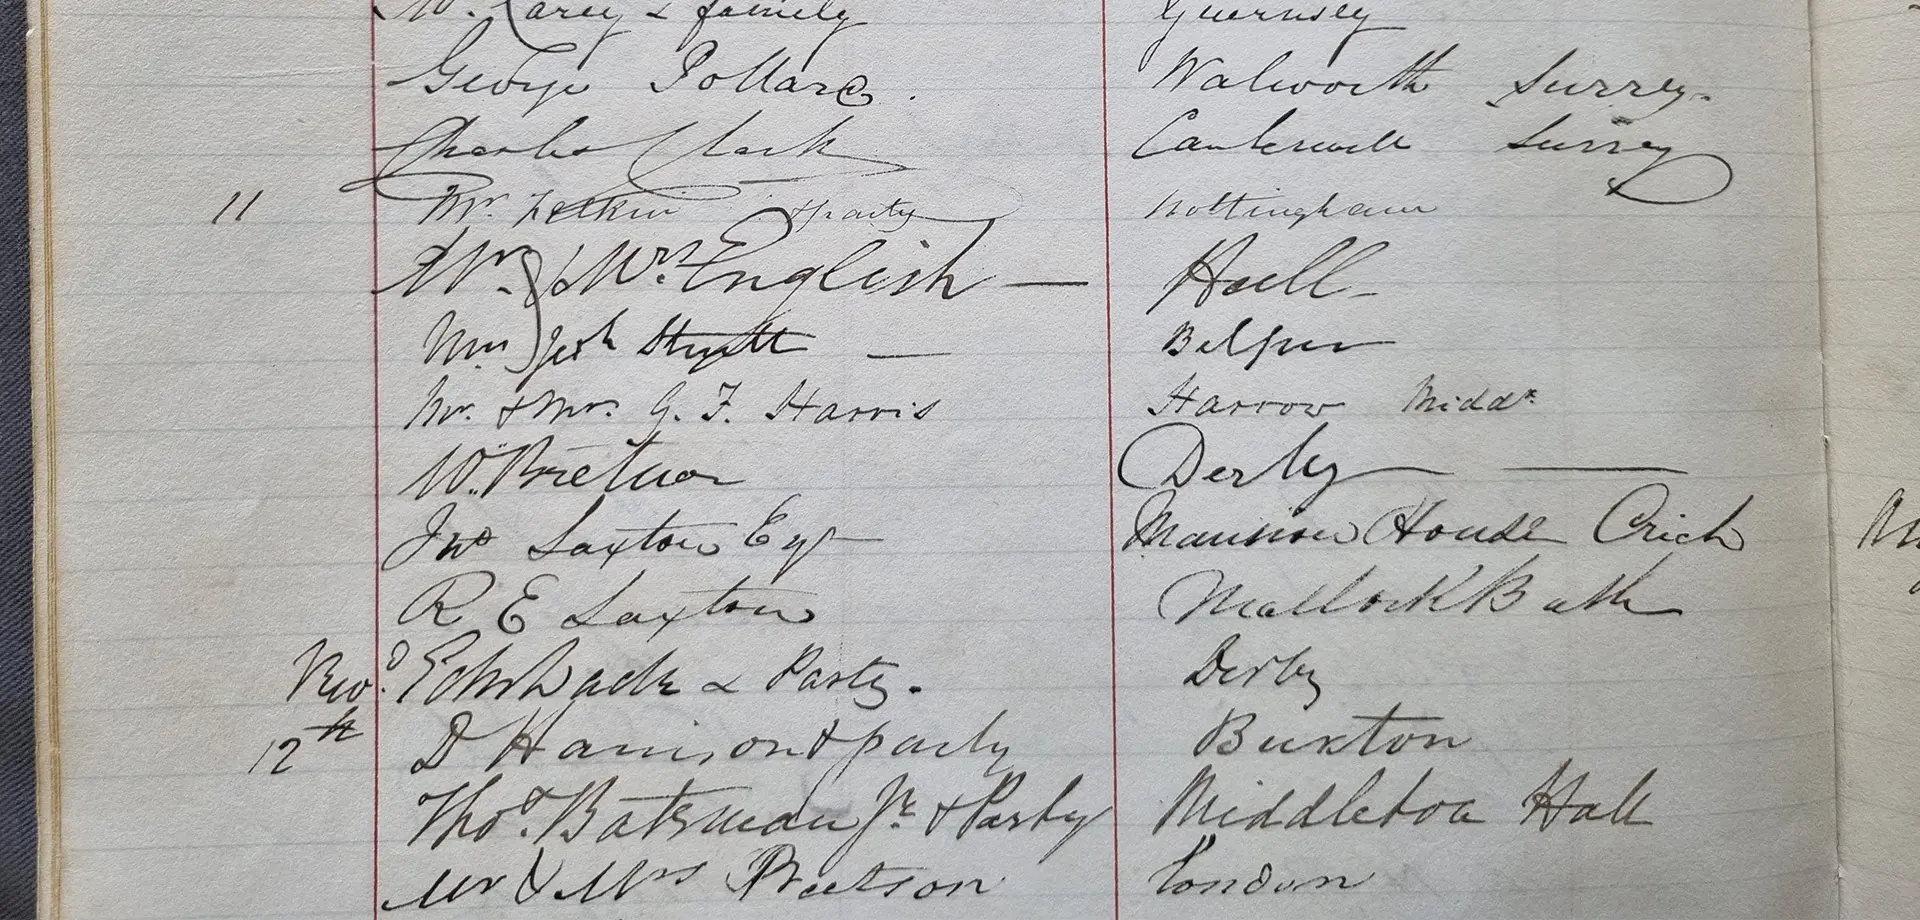 W. Carey & family Guernsey
George Pollard. Walworth Surrey.
Charles Clark Camberwell Surrey
11 Mr. Felkin & party Nottingham
Mr. & Mrs. English — Hull
Strutt — Belper
Mr. & Mrs. G. F. Harris Harrow Middx.
W. Bretnor Derby —
Jno Saxton Esq Mansion House Crich
R E Saxton Matlock Bath
Revd. & Party. Derby
12th D Harrison & party Buxton
Thos. Bateman Jr. & Party Middleton Hall
Mr & Mrs London